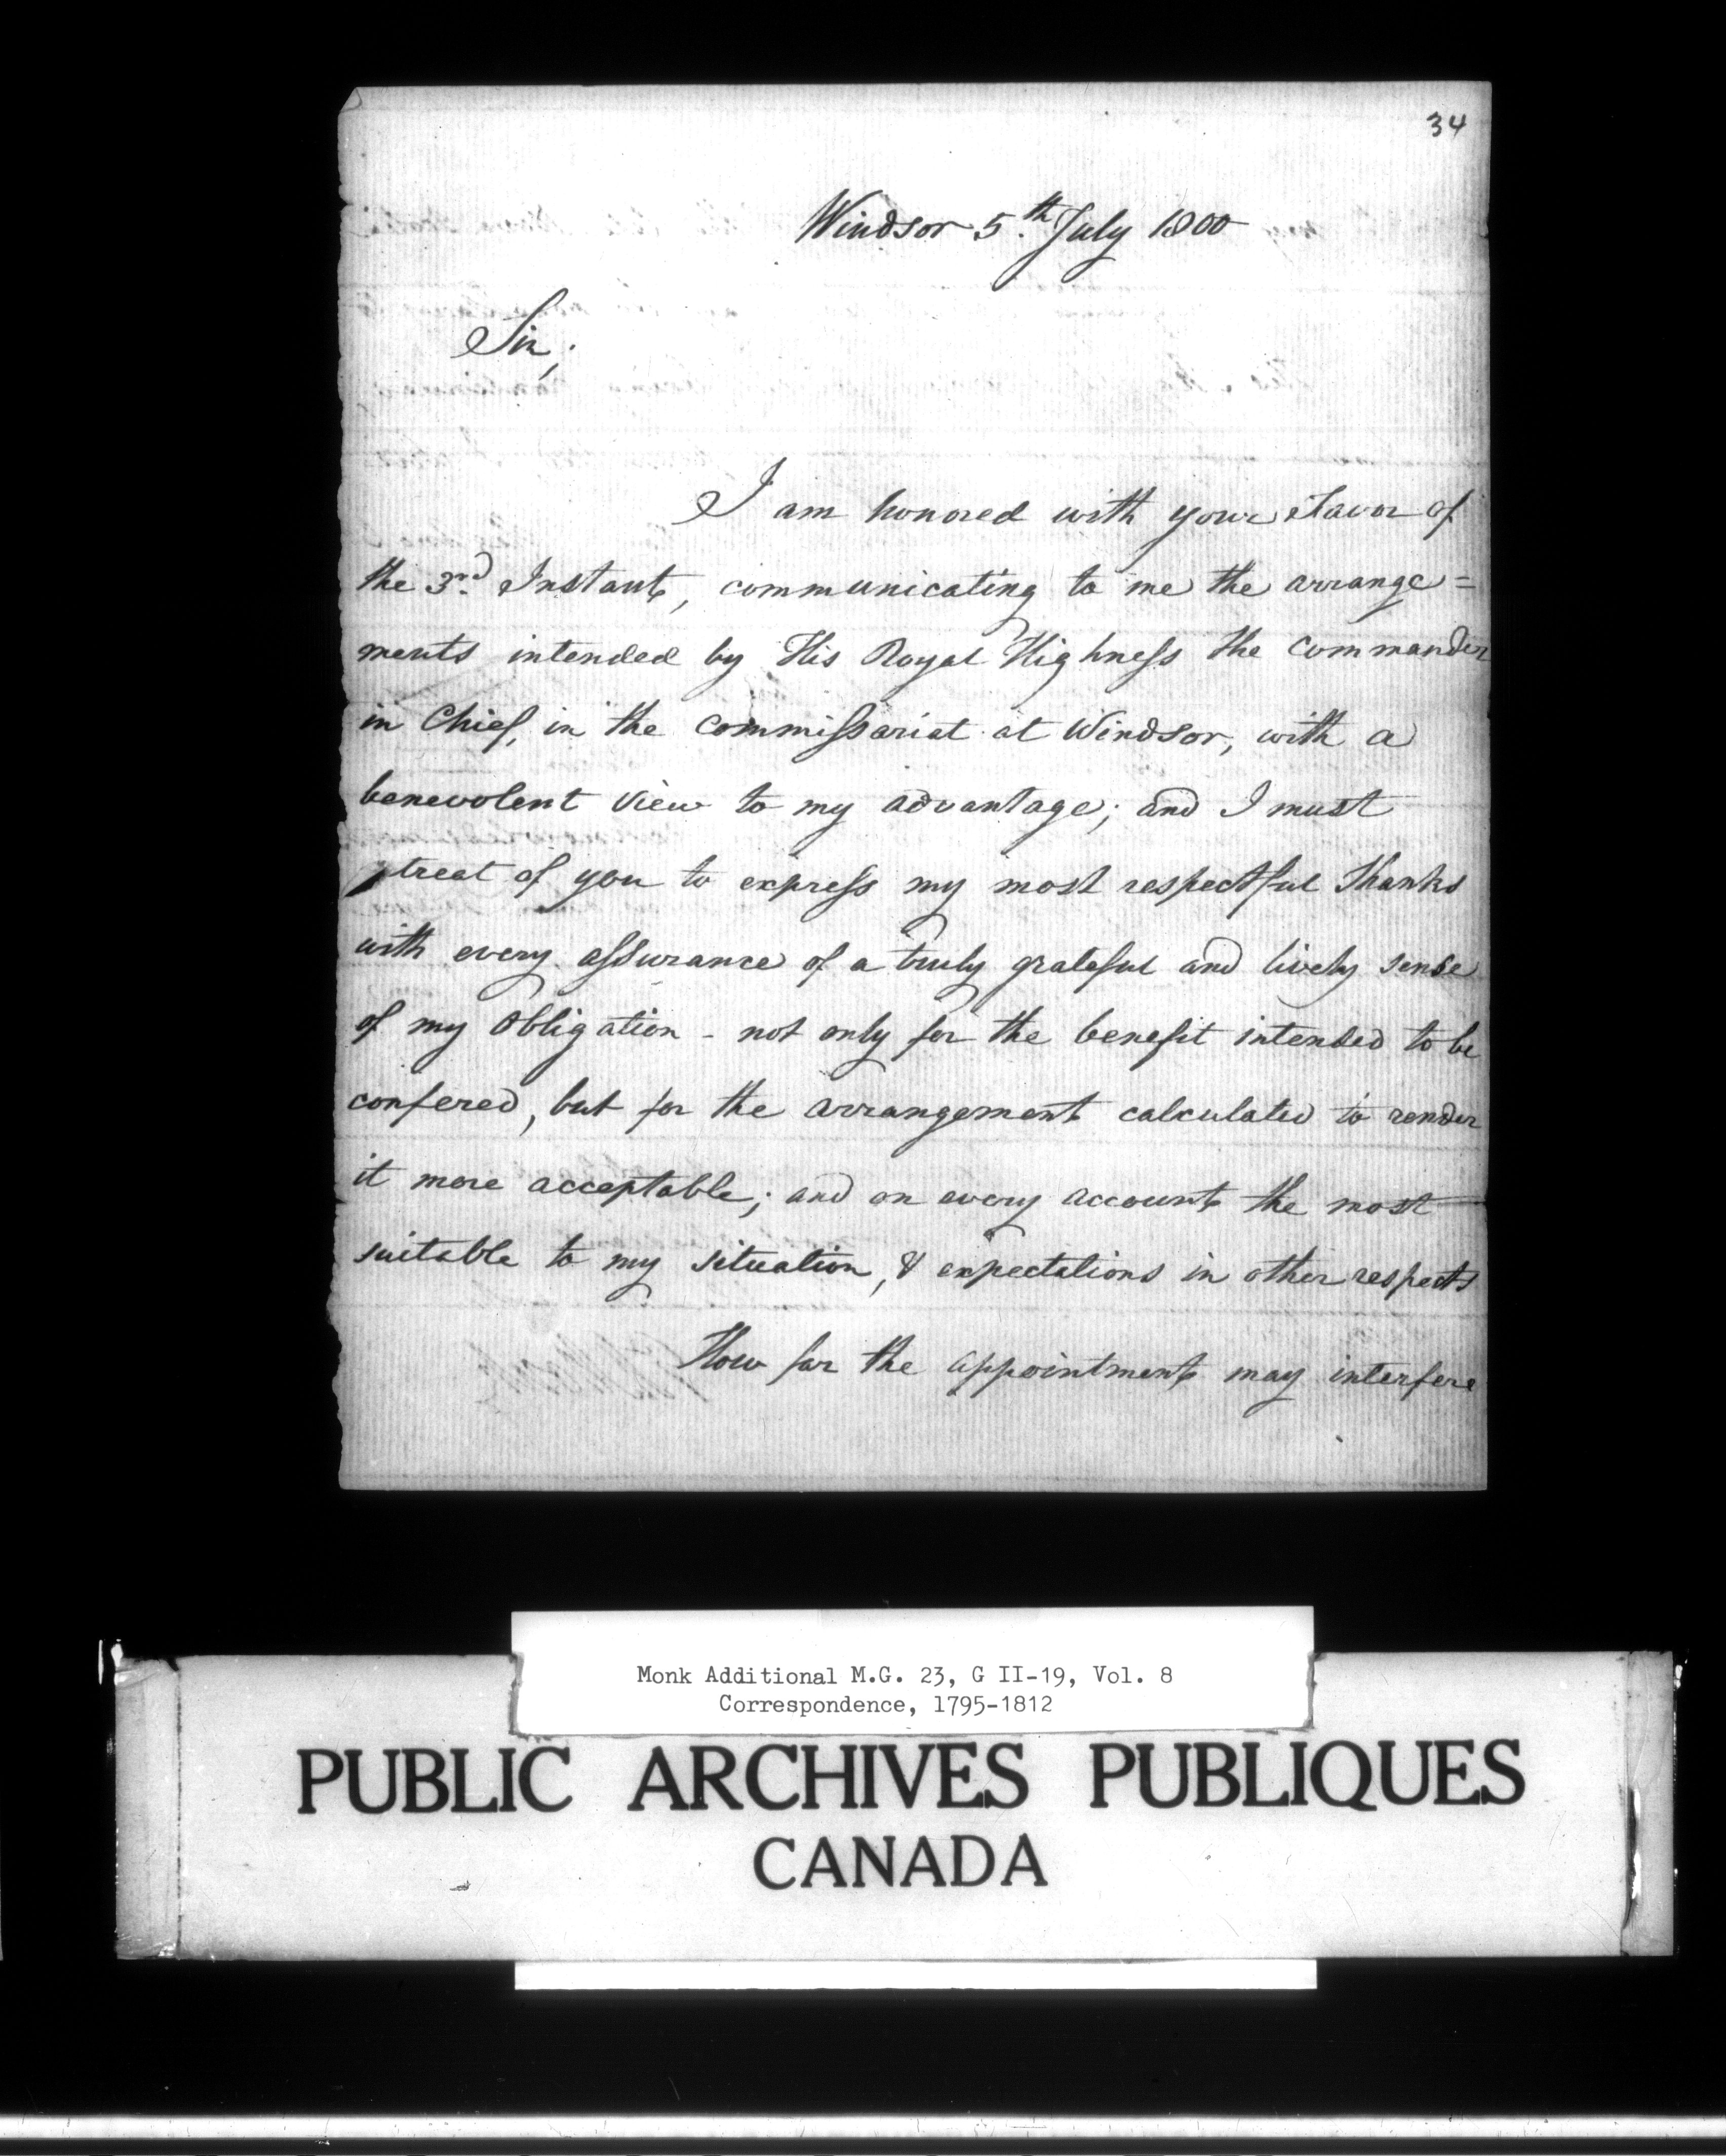 34
Windsor 5.th July 1800
Sir,
I am honored with your Favor of
the 3.rd Instant, communicating to me the arrange=
ments intended by His Royal Highness the Commander
in Chief, in the Commissariat at Windsor, with a
benevolent view to my advantage; and I must
treat of you to express my most respectful thanks
with every assurance of a truly grateful and lively sense
of my Obligation - not only for the benefit intended to be
confered, but for the arrangement calculated to render
it more acceptable; and on every account the most
suitable to my situation, & expectations in other respects
How far the appointment may interfere
Monk Additional M.G. 23, G II-19, Vol. 8
Correspondence, 1795-1812
PUBLIC ARCHIVES PUBLIQUES
CANADA